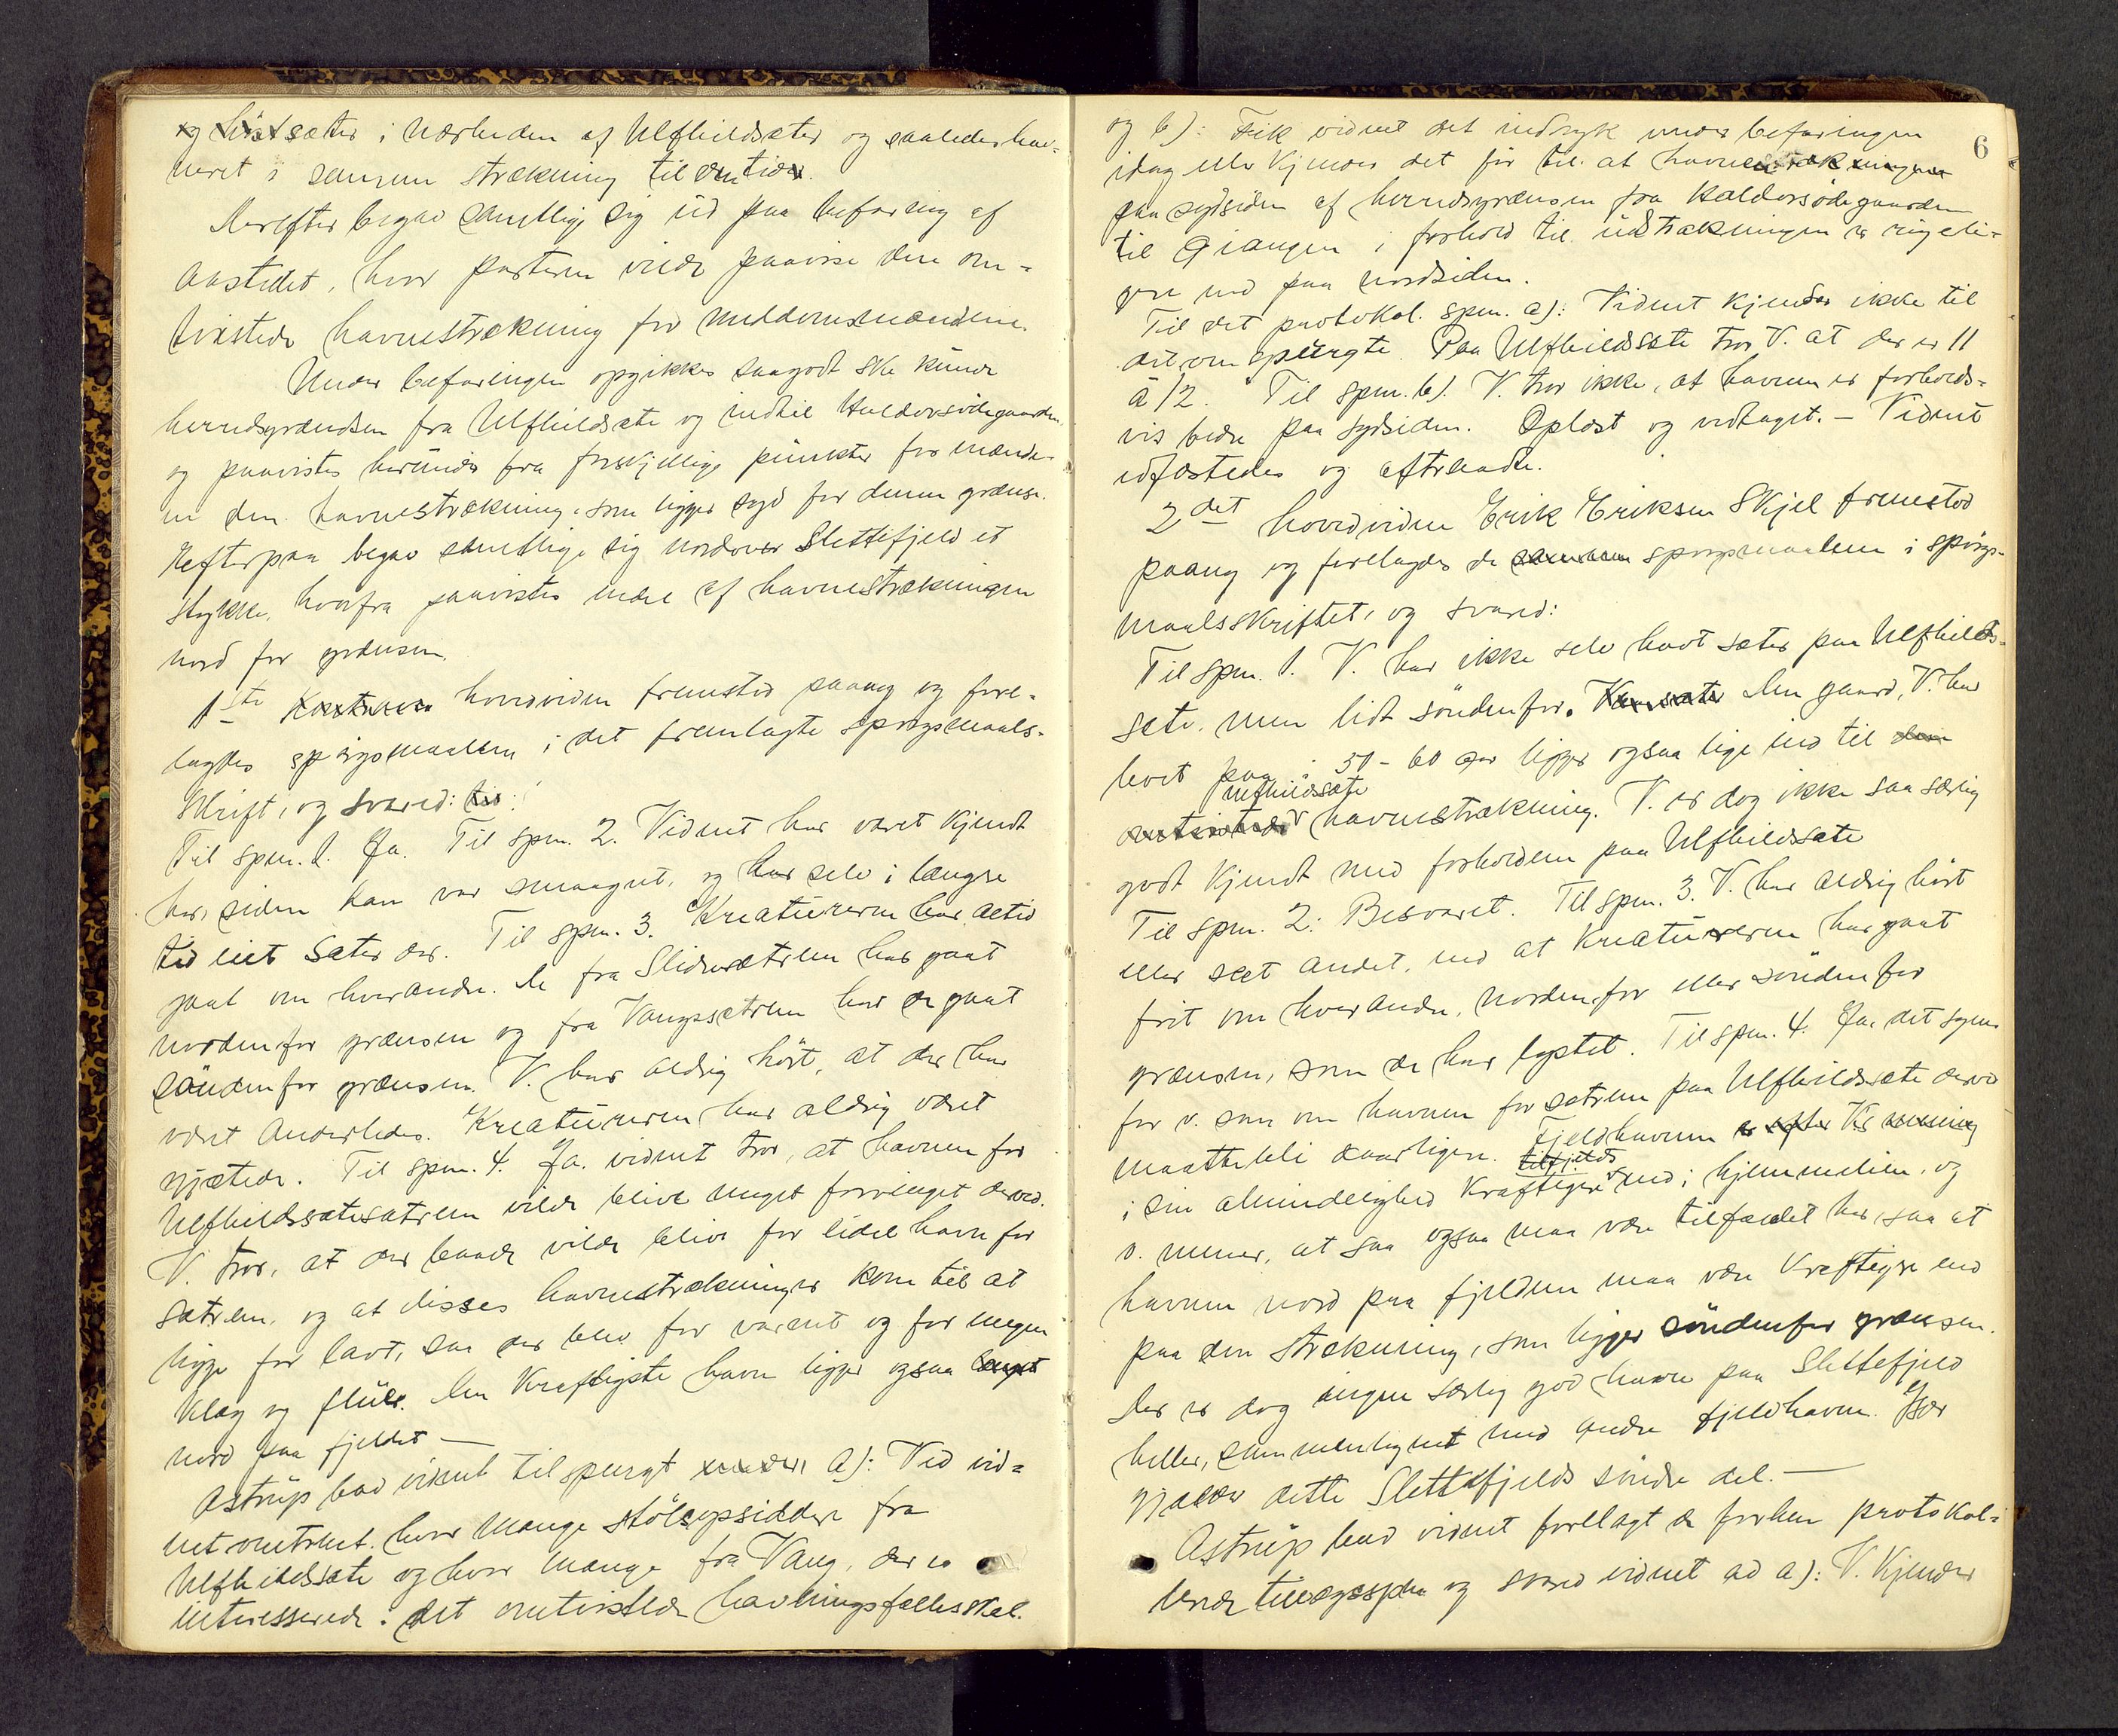 og höstsæter i nærheden af Ulfhildsæter og saaledes hav-
net i samme strækning til den tid.
Derefter begav samtlige sig ud paa befaring af
aastedet, hvor parterne vilde paavise den om-
tvistede havnestrækning for meddomsmændene.
Under befaringen opgikkes saagodt ske kunde
herredsgrændsen fra Ulfhildsæte og indtil Haldorsödegaarden
og paavistes herunder fra forskjellige punkter for mænde-
ne den havnestrækning, som ligger syd for denne grænse.
Efterpaa begav samtlige sig nordover Slettefjeld et
stykke, hvorfra paavistes endel af havnestrækningen
nord for grænsen.
1ste hovedvidne fremstod paany og fore-
lagdes spörgsmaalene i det fremlagte spörgsmaals-
skrift, og svared:
Til spm. 1. Ja. Til spm. 2. Vidnet har været kjendt
her, siden han var smaagut, og har selv i længre
tid leiet sæter der. Til spm. 3. Kreaturerne har altid
gaat om hverandre. De fra Slidresætrene har gaat
nordenfor grænsen og fra Vangssætrene har de gaat
söndenfor grænsen. V. har aldrig hört, at det har
været anderledes. Kreaturerne har aldrig været
gjætede. Til spm. 4. Ja. vidnet tror, at havnen for
Ulfhildsætesætrene vilde blive meget forringet derved.
V. tror, at der baade vilde blive for lidet havn for
sætrene, og at disses havnestrækninger kom til at
ligge for lavt, saa der blev for varmt og for megen
klæg og flue. Den kraftigste havn ligger ogsaa længst
nord paa fjeldet —
Astrup bad vidnet tilspurgt a): Ved vid-
net omtrent, hvor mange stölsopsiddere fra
Ulfhildsæte og hvor mange fra Vang, der er
interesserede i det omtvistede havningsfællesskab.
6
og b): Fik vidnet det indtryk under befaringen
idag eller kjender det för til, at havnestrækningen
paa sydsiden af herredsgrænsen fra Haldorsödegaarden
til Giangen i forhold til udstrækningen er ringeli-
gere end paa nordsiden.
Til det protokol. spm. a): Vidnet kjender ikke til
det om spurgte. Paa Ulfhildsæte tror V. at der er 11
à 12. Til spm. b). V. tror ikke, at havnen er forholds-
vis bedre paa sydsiden. Oplæst og vedtaget. — Vidnet
edfæstedes og aftraadte.
2det hovedvidne Erik Eriksen Skjel fremstod
paany og forelagdes de spörgsmaalene i spörgs-
maalsskriftet, og svared:
Til spm. 1. V. har ikke selv havt sæter paa Ulfhild-
sæte, men lidt söndenfor. Den gaard, V. har
boet paa i 50-60 aar ligger ogsaa lige ind til
Ulfhildsæte
havnestrækning. V. er dog ikke saa særlig
godt kjendt med forholdene paa Ulfhildsæte
Til spm. 2: Besvaret. Til spm. 3. V. har aldrig hört
eller seet andet, end at kreaturerne har gaat
frit om hverandre, nordenfor eller söndenfor
grænsen, som de har lystet. Til spm. 4. Ja, det synes
for v. som om havnen for sætrene paa Ulfhildsæte derved
maatte bli daarligere. Fjeldhavnen er efter V.s mening
tilfjelds
i sin almindelighed kraftigere end i hjemmelien, og
v. mener, at saa ogsaa maa være tilfældet her, saa at
havnen nord paa fjeldene maa være kraftigere end
paa den strækning, som ligger söndenfor grænsen.
Der er dog ingen særlig god havn paa Slettefjeld
heller, sammenlignet med andre fjeldhavne. Især
gjælder dette Slettefjelds söndre del. —
Astrup bad vidnet forelagt de forhen protokol-
lerede tillægsspm og svared vidnet ad a): V. kjender